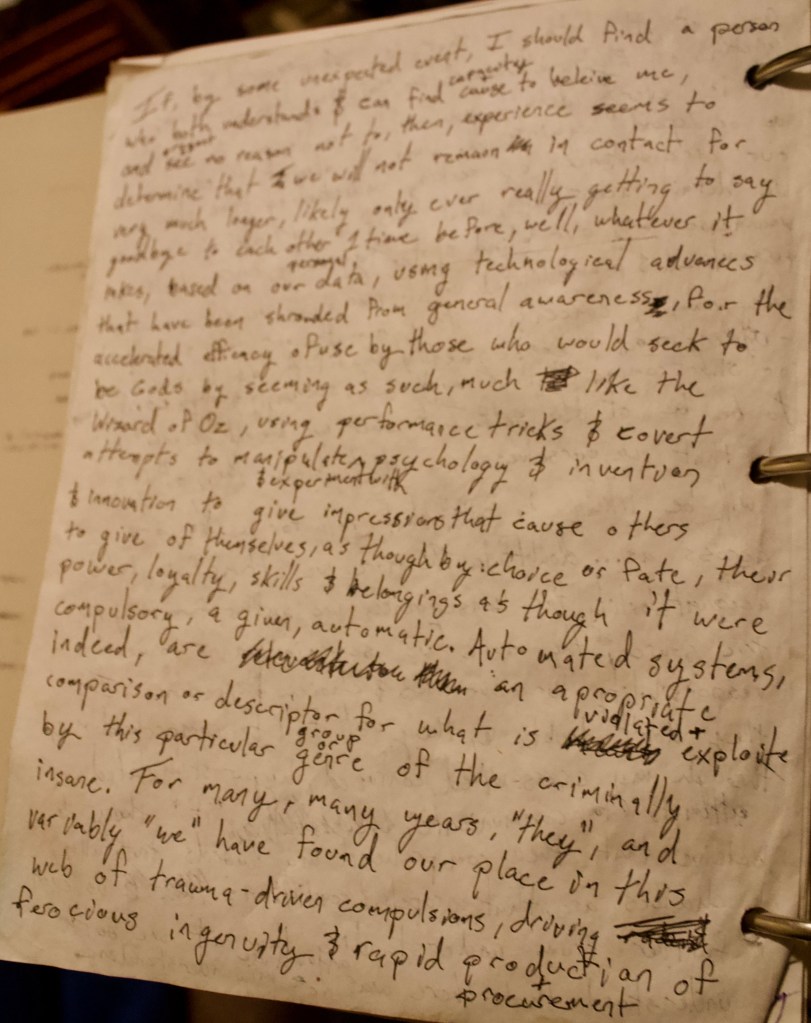 If, by some unexpected event, I should find a person
who both understands & can find capacity cause to beleive me,
and see no reason not to, then, experience seems to
determine that we will not remain in contact for
very much longer, likely only ever really getting to say
goodbye to each other 1 time before, well, whatever it
takes, based on our personal data, using technological advances
that have been shrouded from general awareness, for the
accelerated efficency of use by those who would seek to
be Gods by seeming as such, much like the
Wizard of Oz, using performance tricks & covert
attempts to manipulate psychology & invention
& experiment with
& innovation to give impressions that cause others
to give of themselves, as though by choice or fate, their
power, loyalty, skills & belongings as though it were
compulsory, a given, automatic. Automated systems,
indeed, are an apropriate
comparison or descriptor for what is violated + exploite
by this particular group or genre of the criminally
insane. For many, many years, "they", and
variably "we" have found our place in this
web of trauma-driven compulsions, driving
ferocious ingenuity & rapid production of
+ procurement